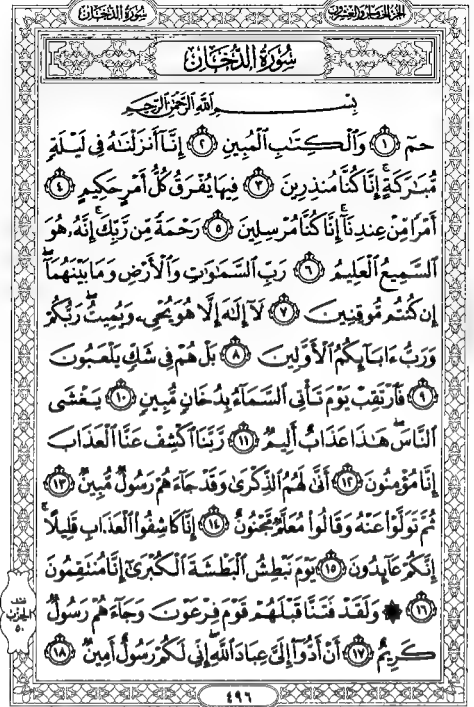 سُورَةُ الدُّخَانِ
الجزء الخامس والعشرون
سُورَةُ الدُّخَانِ
بِسْمِ اللَّهِ الرَّحْمَٰنِ الرَّحِيمِ
حمٓ ١ وَالْكِتَابِ الْمُبِينِ ٢ إِنَّا أَنزَلْنَاهُ فِي لَيْلَةٍ
مُّبَارَكَةٍ ۚ إِنَّا كُنَّا مُنذِرِينَ ٣ فِيهَا يُفْرَقُ كُلُّ أَمْرٍ حَكِيمٍ ٤
أَمْرًا مِّنْ عِندِنَا ۚ إِنَّا كُنَّا مُرْسِلِينَ ٥ رَحْمَةً مِّن رَّبِّكَ ۚ إِنَّهُ هُوَ
السَّمِيعُ الْعَلِيمُ ٦ رَبِّ السَّمَاوَاتِ وَالْأَرْضِ وَمَا بَيْنَهُمَا ۖ
إِن كُنتُم مُّوقِنِينَ ٧ لَا إِلَٰهَ إِلَّا هُوَ يُحْيِي وَيُمِيتُ ۖ رَبُّكُمْ
وَرَبُّ ءَابَائِكُمُ الْأَوَّلِينَ ٨ بَلْ هُمْ فِي شَكٍّ يَلْعَبُونَ
٩ فَارْتَقِبْ يَوْمَ تَأْتِي السَّمَاءُ بِدُخَانٍ مُّبِينٍ ١٠ يَغْشَى
النَّاسَ ۖ هَٰذَا عَذَابٌ أَلِيمٌ ١١ رَّبَّنَا اكْشِفْ عَنَّا الْعَذَابَ
إِنَّا مُؤْمِنُونَ ١٢ أَنَّىٰ لَهُمُ الذِّكْرَىٰ وَقَدْ جَاءَهُمْ رَسُولٌ مُّبِينٌ ١٣
ثُمَّ تَوَلَّوْا عَنْهُ وَقَالُوا مُعَلَّمٌ مَّجْنُونٌ ١٤ إِنَّا كَاشِفُوا الْعَذَابِ قَلِيلًا ۚ
إِنَّكُمْ عَائِدُونَ ١٥ يَوْمَ نَبْطِشُ الْبَطْشَةَ الْكُبْرَىٰ إِنَّا مُنتَقِمُونَ
١٦ ۞ وَلَقَدْ فَتَنَّا قَبْلَهُمْ قَوْمَ فِرْعَوْنَ وَجَاءَهُمْ رَسُولٌ
كَرِيمٌ ١٧ أَنْ أَدُّوا إِلَيَّ عِبَادَ اللَّهِ ۖ إِنِّي لَكُمْ رَسُولٌ أَمِينٌ ١٨
الحزب
٥٠
٤٩٦